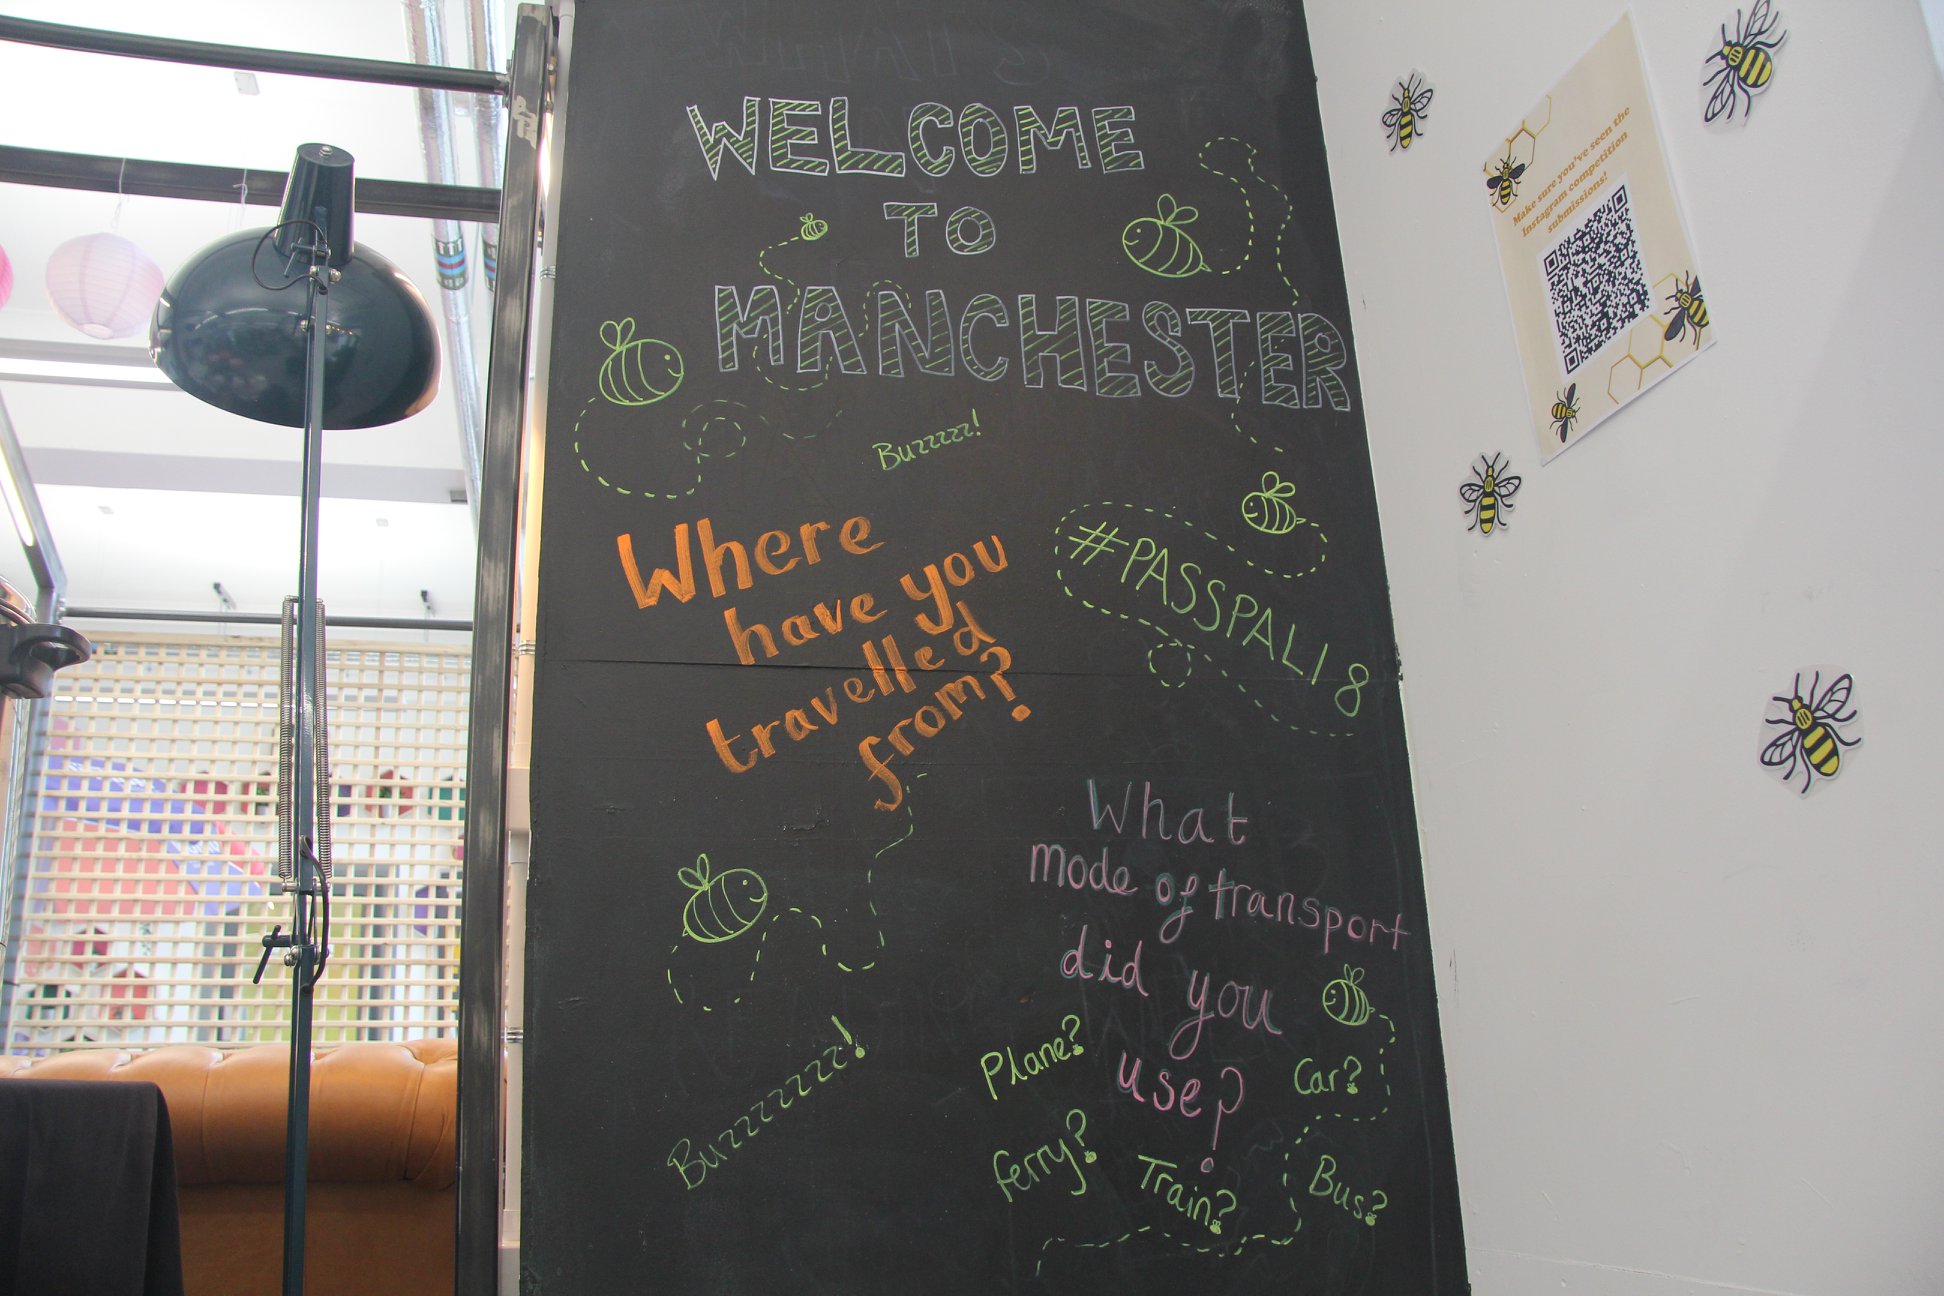 WELCOME
TO
MANCHESTER
Buzzzzz!
Where
have you
travelled
from?
#PASSPAL18
What
mode of transport
did you
use?
Plane?
Car?
Ferry?
Train?
Bus?
Buzzzzzzz!
Make sure you've seen the
Instagram competition
submissions!